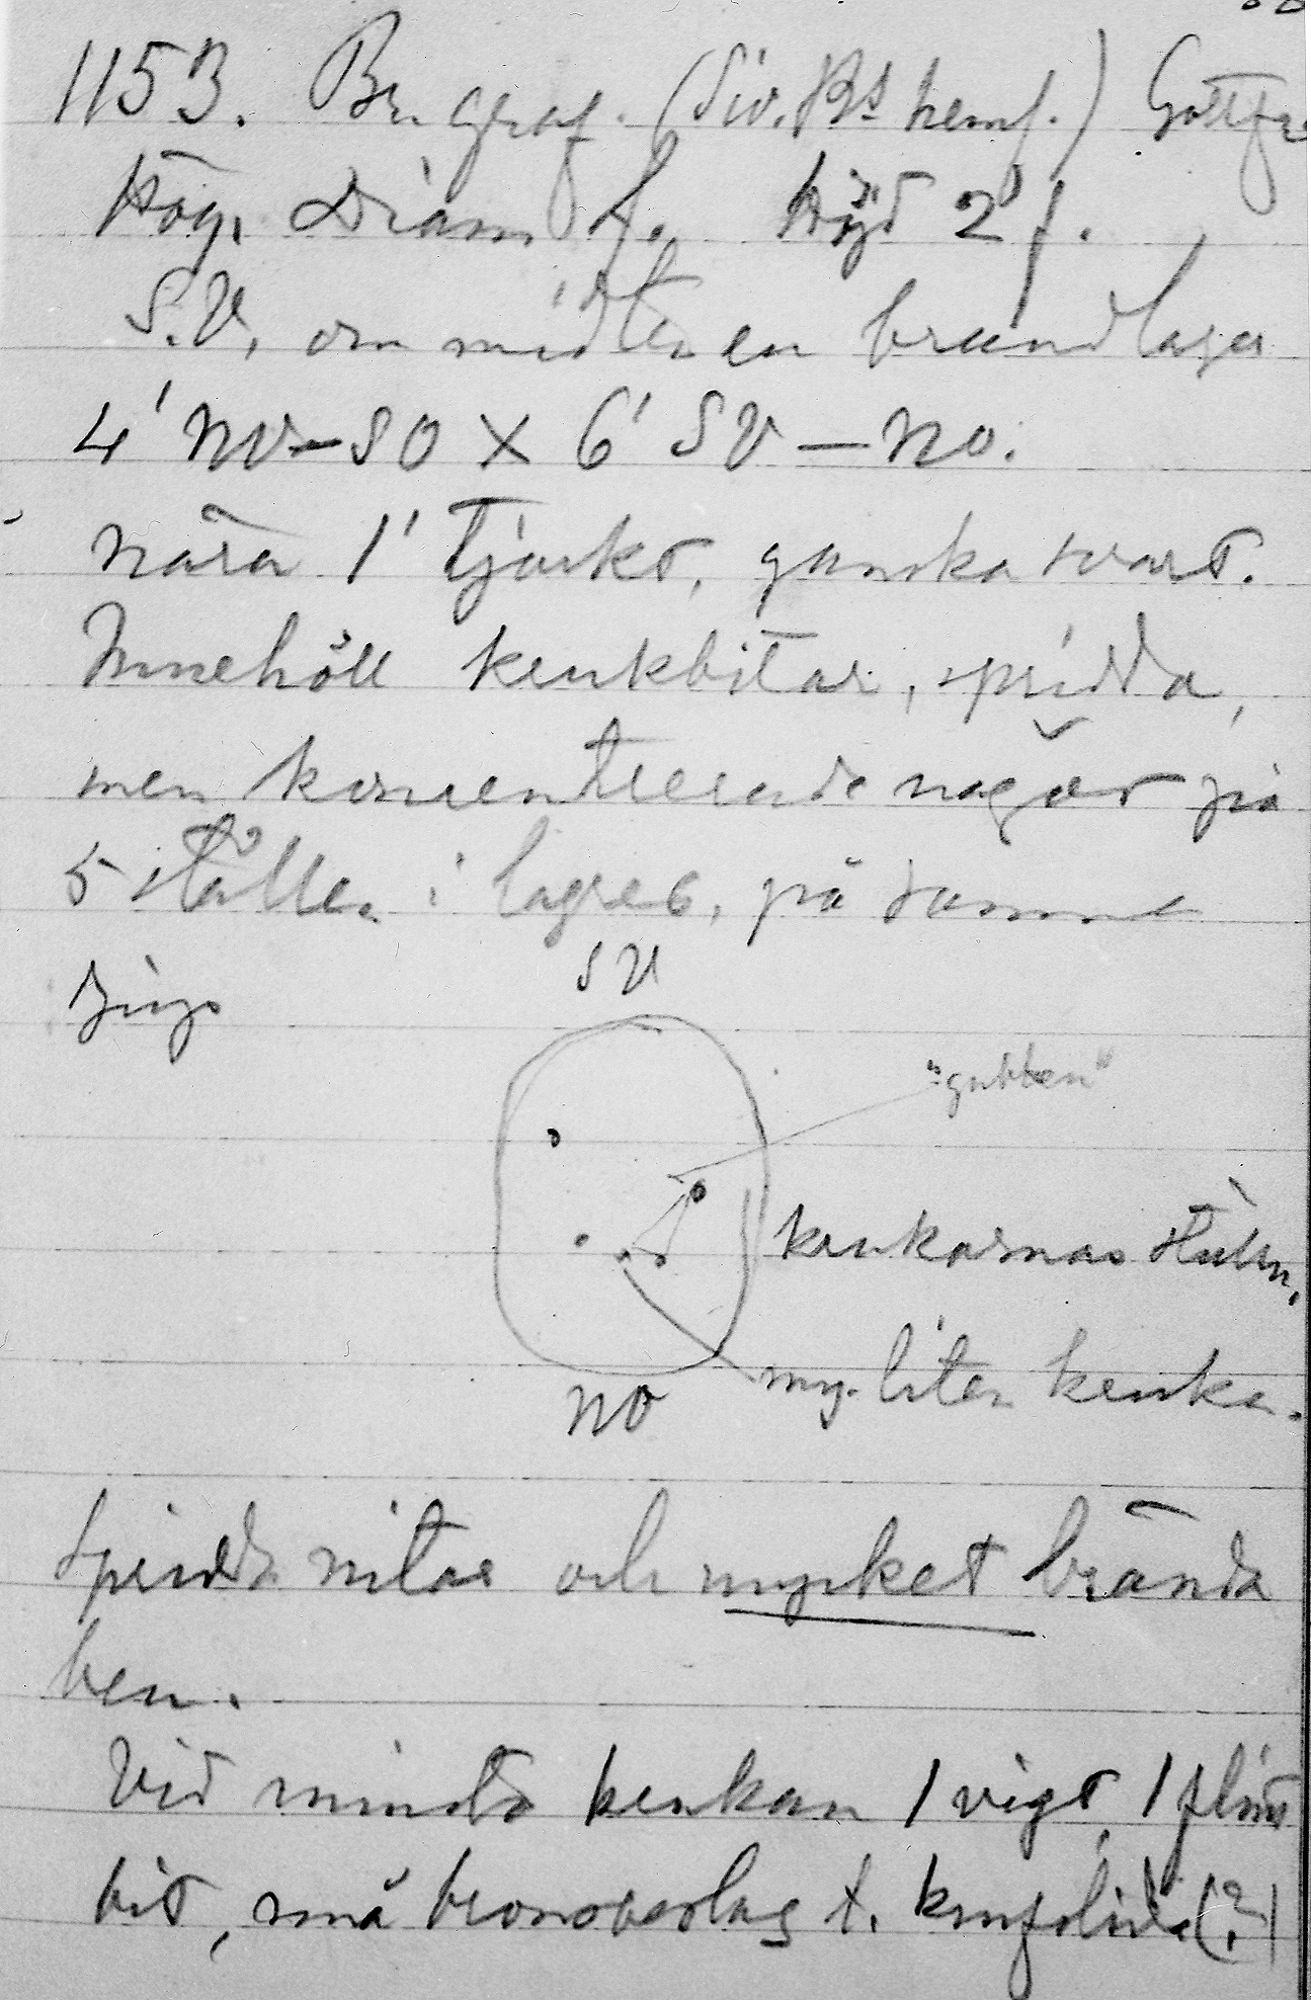 115B. Br. graf. (Siv. Bs hemf.)
Hög. Diam f. Höjd 2 f.
S.V. om midten en brandlager
4' NV-SO X 6' SV-NO.
nära 1' tjockt, ganska svart.
Innehöll krukbitar, spridda,
men koncentrerade något på
5 ställen i lagret, på samma
djup
SV
"gubben"
krukornas ställen.
my. liten kruka.
NO
Spridda nitar och mycket brända
ben.
Vid minsta krukan 1 vigt, 1 flint
bit, små bronsbeslag t. knifslida (?)